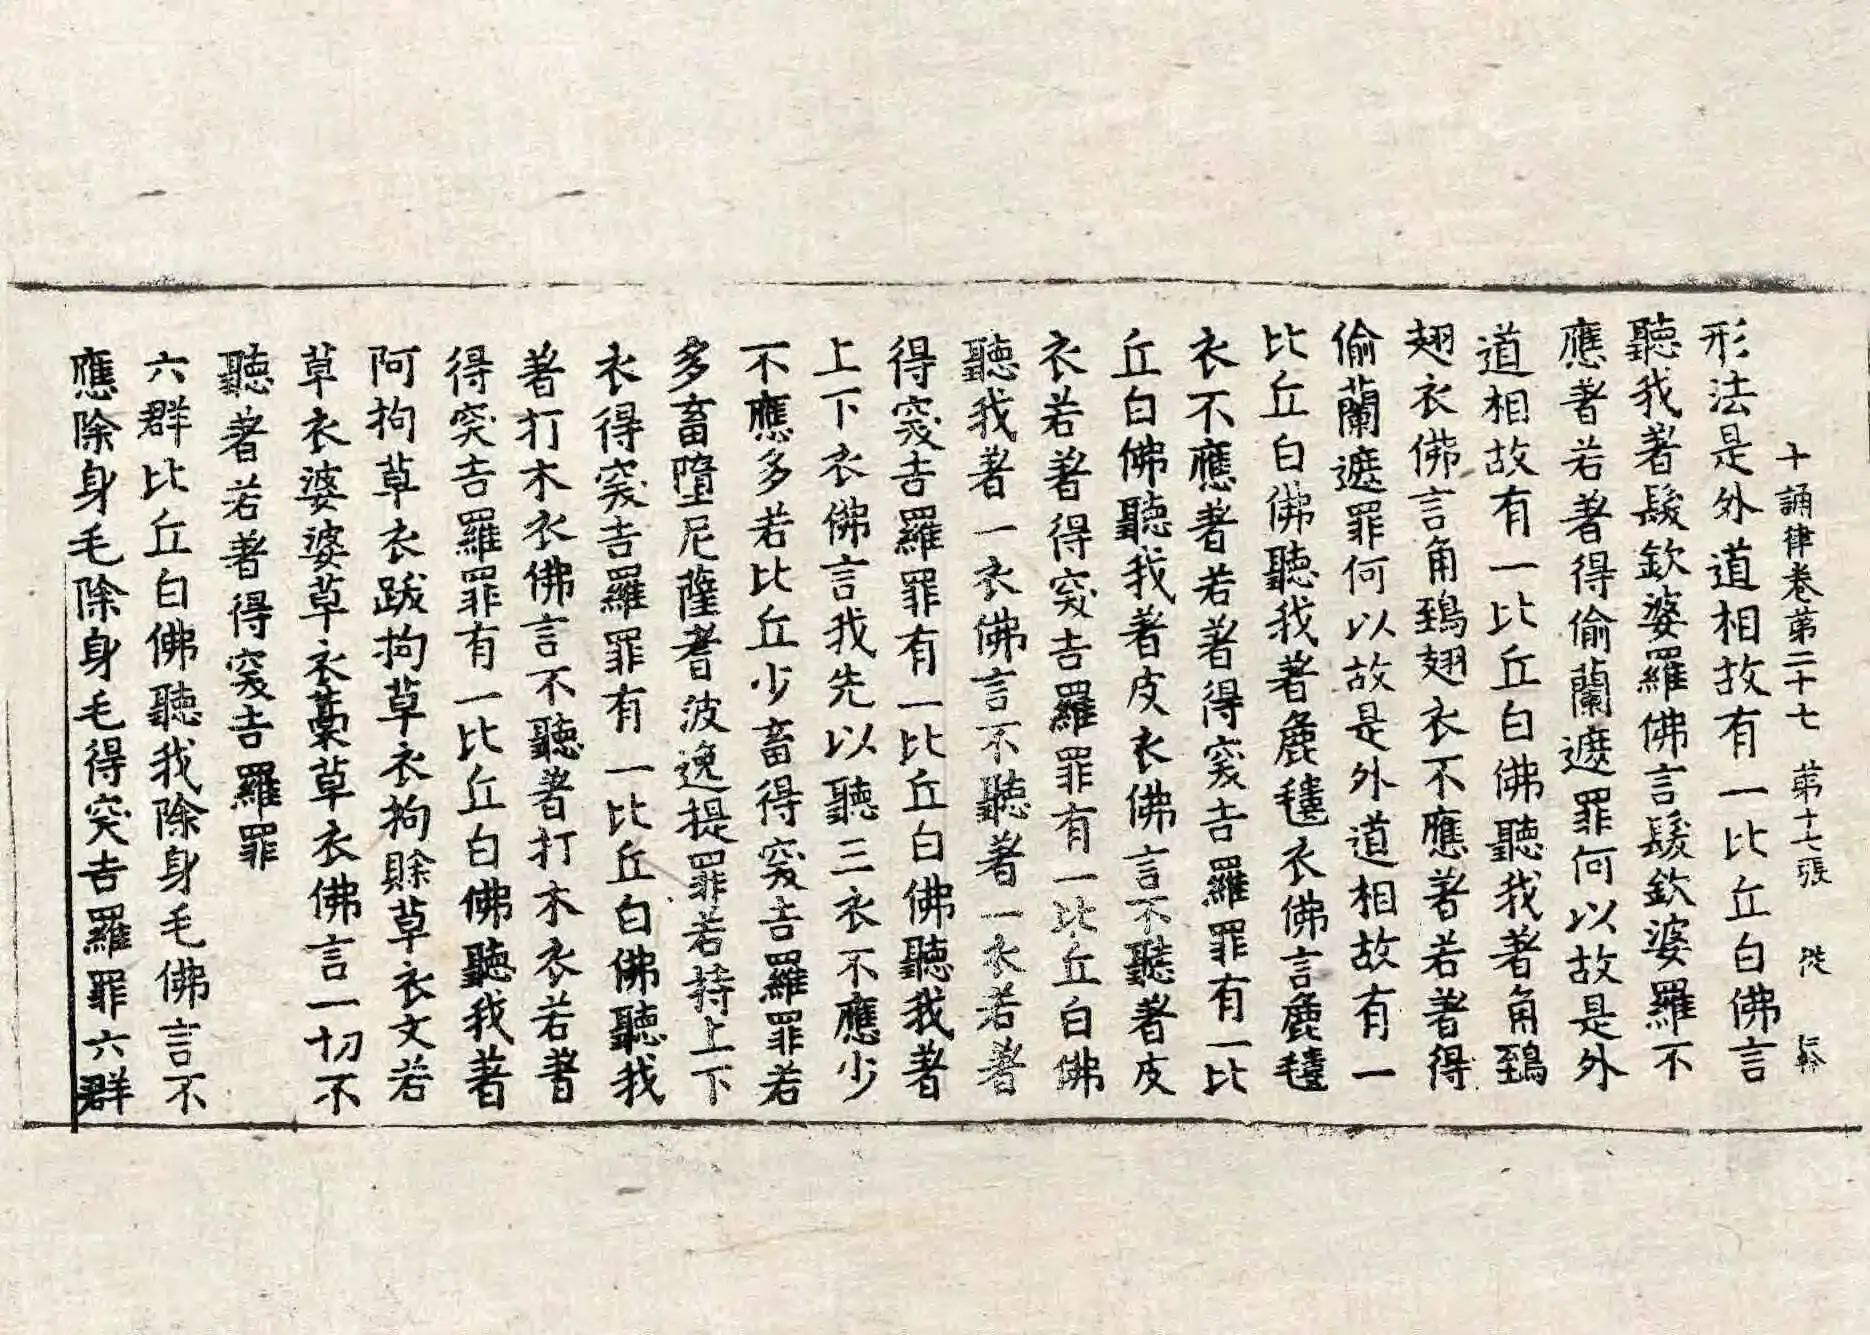 十誦律卷苐二十七 苐十七張
形法是外道相故有一比丘白佛言
聽我著髮欽婆羅佛言髮欽婆羅不
應著若著得偷蘭遮罪何以故是外
道相故有一比丘白佛聽我著角鵄
翅衣佛言角鵄翅衣不應著若著得
偷蘭遮罪何以故是外道相故有一
比丘白佛聽我著麁衣佛言麁
衣不應著若著得突吉羅罪有一比
丘白佛聽我著皮衣佛言不聽著皮
衣若著得突吉羅罪有一比丘白佛
聽我著一衣佛言不聽著一衣若著
得突吉羅罪有一比丘白佛聽我著
上下衣佛言我先以聽三衣不應少
不應多若比丘少畜得突吉羅罪若
多畜墮尼薩耆波逸提罪若持上下
衣得突吉羅罪有一比丘白佛聽我
著打木衣佛言不聽著打木衣若著
得突吉羅罪有一比丘白佛聽我著
阿拘草衣跋拘草衣拘賒草衣文若
草衣婆婆草衣藁草衣佛言一切不
聽著若著得突吉羅罪
六群比丘白佛聽我除身毛佛言不
應除身毛除身毛得突吉羅罪六群